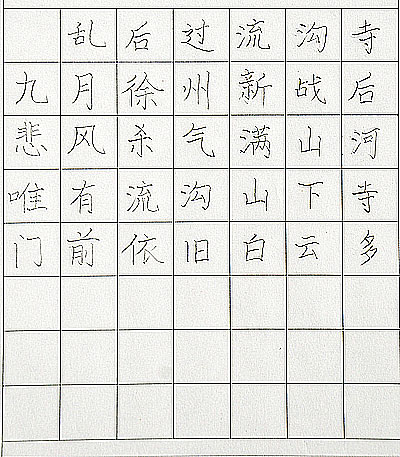 乱后过流沟寺
九月徐州新战后
悲风杀气满山河
唯有流沟山下寺
门前依旧白云多